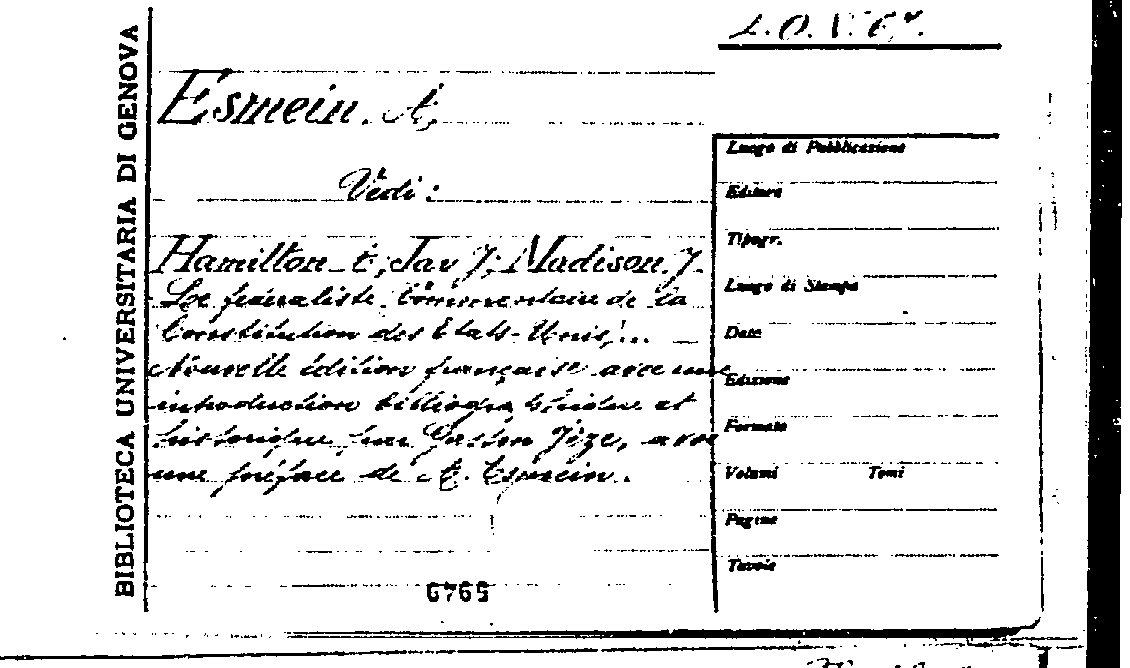 BIBLIOTECA UNIVERSITARIA DI GENOVA
Esmein. A.
Vedi:
Hamilton ; Jay J; Madison. J.
Le fédéraliste. Commentaire de la
Constitution des Etats-Unis,...
Nouvelle édition française avec une
introduction bibliographique et
historique par Gaston Jèze, avec
une préface de A. Esmein.
6765
Luogo di Pubblicazione
Editore
Tipogr.
Luogo di Stampa
Data
Edizione
Formato
Volumi Tomi
Pagine
Tavole